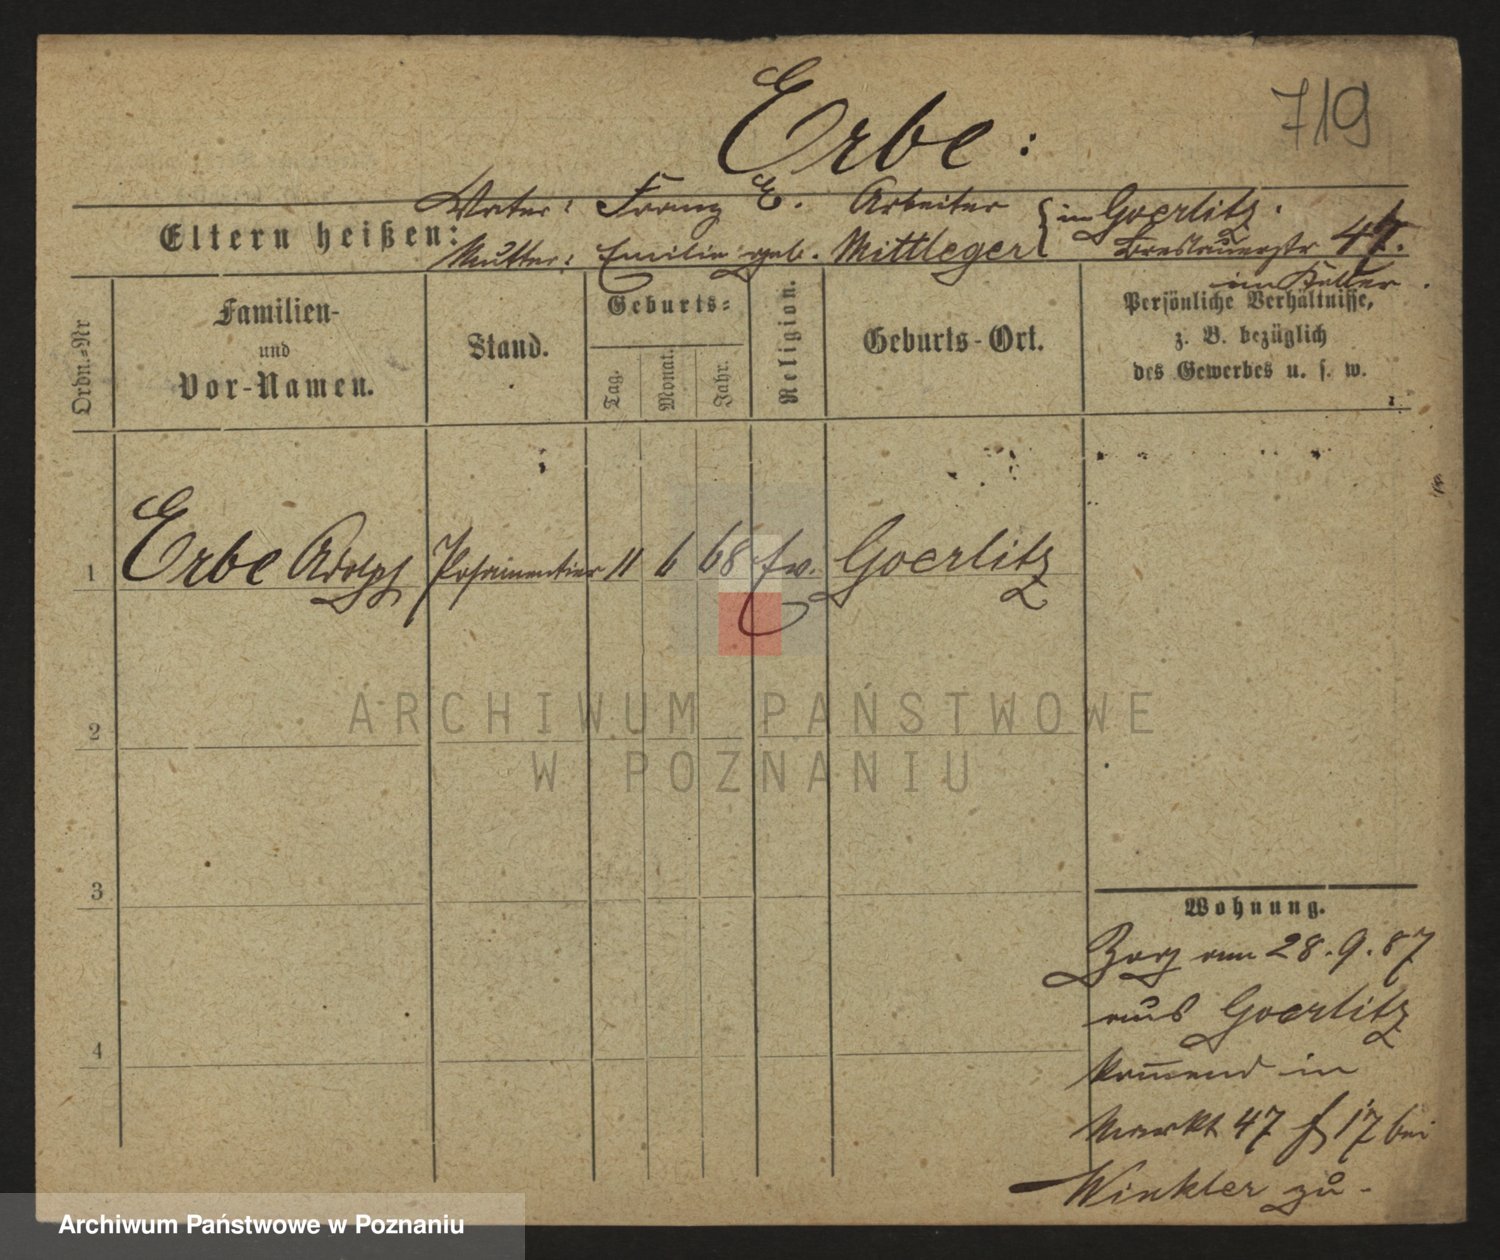 Erbe:
719
Vater: Franz E. Arbeiter in Goerlitz.
Eltern heißen:
Mutter: Emilie geb. Mittleger Breslauerstr 47.
im Keller.
Ordn.=Nr
Familien-
und
Vor-Namen.
Stand.
Geburts=
Tag.
Monat.
Jahr.
Religion.
Geburts-Ort.
Persönliche Verhältnisse,
z. B. bezüglich
des Gewerbes u. s. w.
1 Erbe Adolph Posamentier 11 6 68 ev. Goerlitz
2
3
4
Wohnung.
Zog am 28.9.87
aus Goerlitz
kom̅end in
Markt 47 17 bei
Winkler zu.
ARCHIWUM PAŃSTWOWE
W POZNANIU
Archiwum Państwowe w Poznaniu